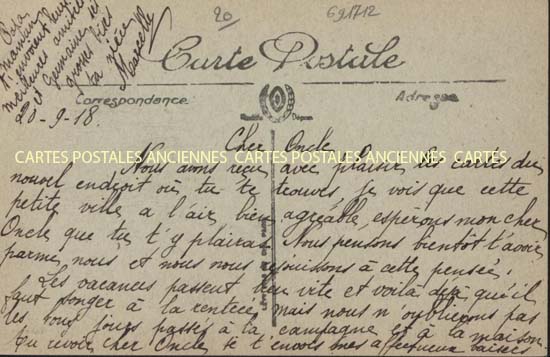 20
691712
Papa
et maman
envoient leurs
meilleures amitiés
et Germaine et
grosses bises
ta nièce
Marcelle
Carte Postale
Correspondance
Adresse
Modèle Déposé
20-9-18.
Cher Oncle
CARTES POSTALES ANCIENNES CARTES POSTALES ANCIENNES CARTES POSTALES ANCIENNES
Nous avons reçu avec plaisir les cartes du
nouvel endroit où tu te trouves, je vois que cette
petite ville a l'air bien agréable, espérons mon cher
Oncle que tu t'y plairas. Nous pensons bientôt t'avoir
parmi nous et nous nous rejouissons à cette pensée.
Les vacances passent bien vite et voilà déjà qu'il
faut songer à la rentrée, mais nous n'oublierons pas
les bons jours passés à la campagne et à la maison
Au revoir cher Oncle je t'envois mes affectueux baisers